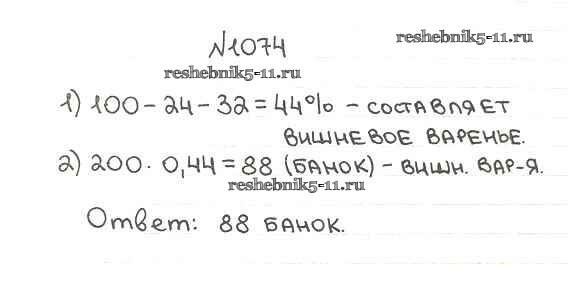 №1074
reshebnik5-11.ru
reshebnik5-11.ru
1) 100 - 24 - 32 = 44% - составляет
вишневое варенье.
2) 200 · 0,44 = 88 (банок) - вишн. вар-я.
reshebnik5-11.ru
Ответ: 88 банок.